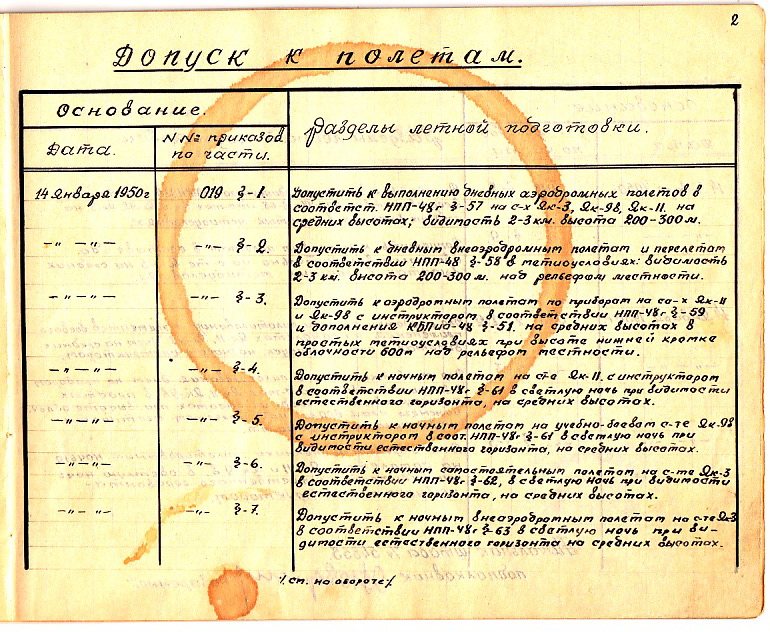 2
Допуск к полетам.
Основание.
Разделы летной подготовки.
Дата.
N Nº приказов
по части.
14 Января 1950г
019 §-1.
Допустить к выполнению дневных аэродромных полетов в
соответст. НПП-48г §-57 на с-х Як-3, Як-9В, Як-11. на
средних высотах; видимость 2-3 км. высота 200-300м.
-"- -"-
-"- §-2.
Допустить к дневным внеаэродромным полетам и перелетам
в соответствии НПП-48 §-58 в метиоусловиях: видимость
2-3 км. высота 200-300м. над рельефом местности.
-"- -"-
-"- §-3.
Допустить к аэродромным полетам по приборам на са-х Як-11
и Як-9В с инструктором в соответствии НПП-48г §-59
и дополнения КБПиа-48 §-51. на средних высотах в
простых метиоусловиях при высоте нижней кромке
облочности 600м над рельефом местности.
-"- -"-
-"- §-4.
Допустить к ночным полетам на ст-е Як-11. с инструктором
в соответствии НПП-48г §-61 в светлую ночь при видимости
естественного горизонта, на средних высотах.
-"- -"-
-"- §-5.
Допустить к ночным полетам на учебно-боевам с-те Як-9В
с инструктором в соот. НПП-48г §-61 в светлую ночь при
видимости естественного горизонта, на средних высотах.
-"- -"-
-"- §-6.
Допустить к ночным самостоятельным полетам на с-те Як-3
в соответствии НПП-48г §-62, в светлую ночь при видимости
естественного горизонта, на средних высотах.
-"- -"-
-"- §-7.
Допустить к ночным внеаэродромным полетам на с-те Як-3
в соответствии НПП-48г §-63 в светлую ночь при ви-
димости естественного горизонта на средних высотах.
/ст. на обороте/